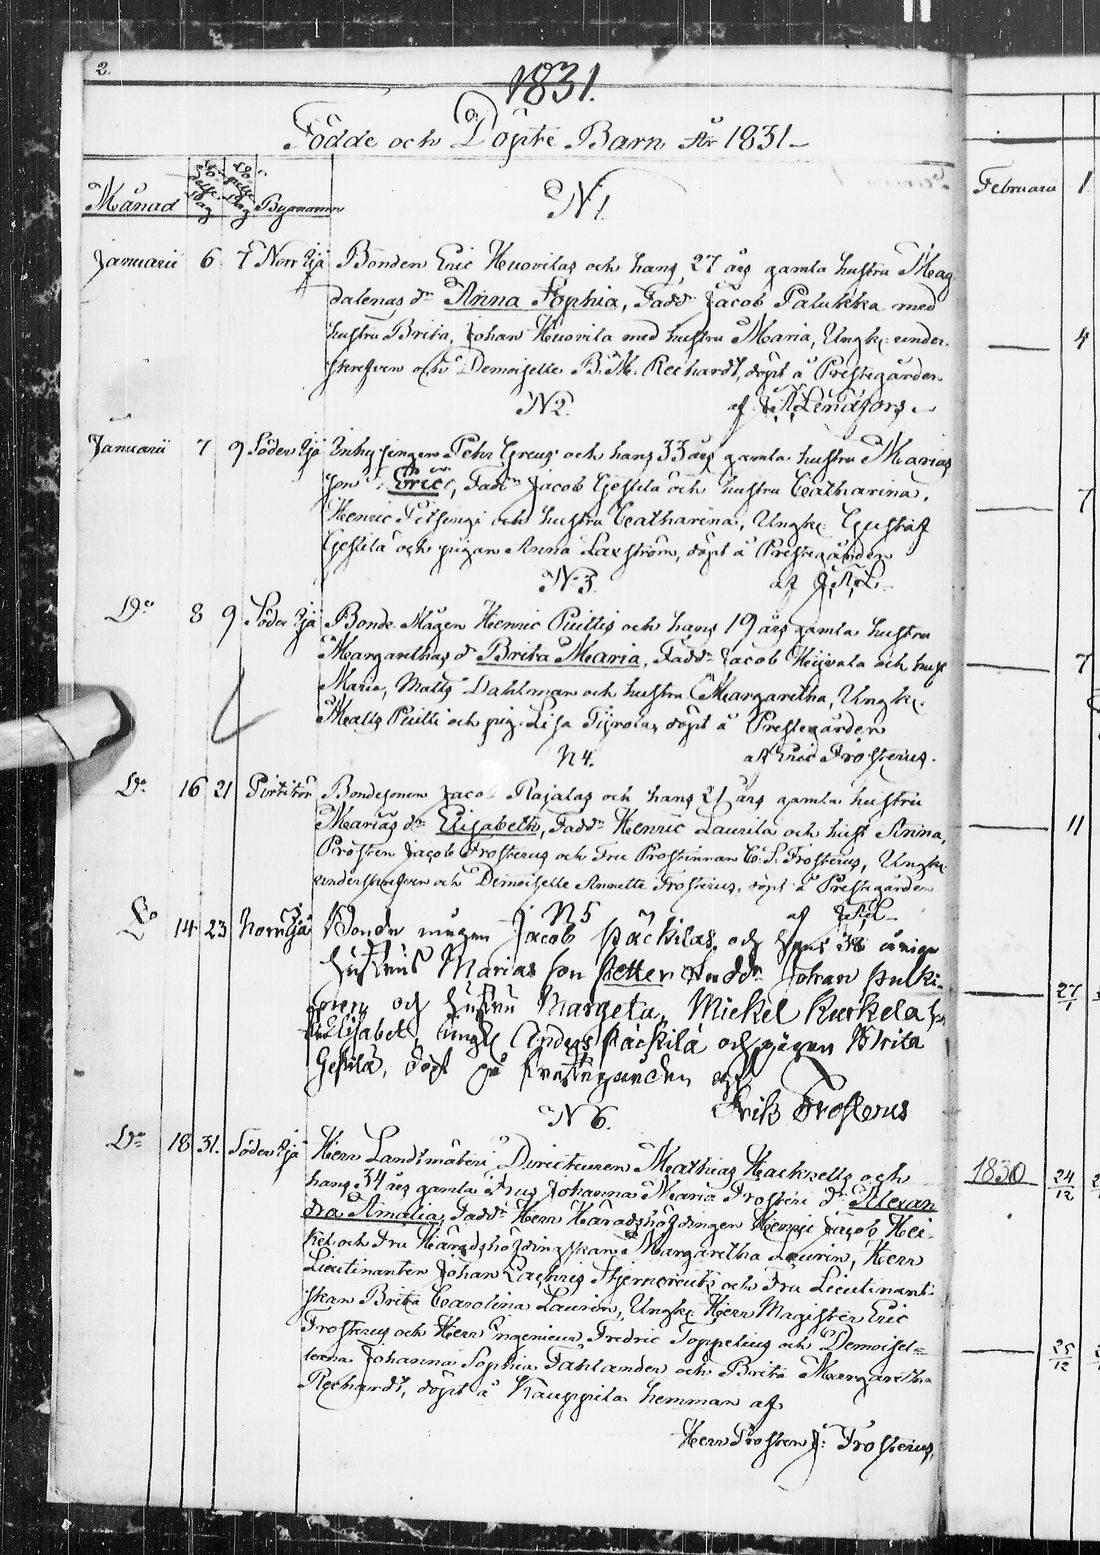 2.
1831.
Födde och Döpte Barn År 1831
Månad Fö- delse- dag Dö- pelse- dag Bynamn
N 1.
Januarii 6 7 Norr Ijå Bonden Eric Huovilas och hans 27 års gamla hustru Mag
dalenas dr Anna Sophia, Faddr Jacob Palukka med
hustru Brita, Johan Huovila med hustru Maria, Ungk: under-
skrefven och Demoiselle B. M. Rechardt, döpt å Prestegården
N 2. af J. A. Lindfors
Januarii 7 9 Söder Ijå Inhysingen Pehr Greus och hans 33 års gamla hustru Marias
son Eric, Faddr Jacob Gestila och hustru Catharina,
Henric Pitsingi och hustru Catharina, Ungk: Gustaf
Gestila och pigan Anna Laxström, döpt å Prestegården
N 3 af J. A. L.
Do 8 9 Söder Ijå Bonde Mågen Henric Puittis och hans 19 års gamla hustru
Margarethas d Brita Maria, Faddr Jacob Hyvala och hust
Maria, Matts Dahlman och hustru Margaretha, Ungk:
Matts Puitti och pig: Lisa Tyrola, döpt å Prestegården
N 4. af Eric Frosterus.
Do 16 21 Bondesonen Jacob Rajalas och hans 21 års gamla hustru
Marias dr Elisabeth, Faddr Henric Laurila och hust Anna,
Prosten Jacob Frosterus och Fru Prostinnan C. S. Frosterus, Ungk:
underskrefven och Demoiselle Annette Frosterus, döpt å Prestegården
N 5 af J. A. L.
Do 14 23 Norr Ijå Bonde mågen Jacob Päckilas och hans 38 åriga
hustrus Marias son Petter Faddr Johan Pulki-
nen och hustru Margeta, Mickel Kurkela h:
Elisabet, Ungk Anders Päckilä och pigan Brita
Gestilä, döpt på Prestegården af
Erik Frosterus
N 6.
Do 18 31. Söder Ijå Herr Landtmäteri Directeuren Mathias Hacksells och
hans 34 års gamla Frus Johanna Maria Frosteri dr Alexan
dra Amalia, Faddr Herr Häradshöfdingen Henric Jacob Hei-
kel och Fru Häradshöfdingskan Margaretha Laurin, Herr
Lieutinanten Johan Zachris Stjerncreutz och Fru Lieutinant-
skan Brita Carolina Laurin, Ungk: Herr Magister Eric
Frosterus och Herr Ingenieur Fredric Toppelius och Demoisel=
lerna Johanna Sophia Fahlander och Brita Margaretha
Rechardt, döpt å Kauppila hemman af
Herr Prosten J: Frosterus,
Februarii 1
4
7
7
11
27/1
1830 24/12
25/12